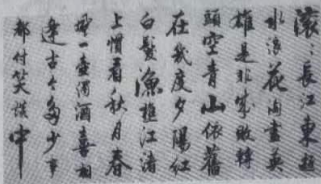 滚〻長江東逝
水浪花淘盡英
雄是非成敗轉
頭空青山依舊
在幾度夕陽紅
白髮漁樵江渚
上慣看秋月春
風一壺濁酒喜相
逢古今多少事
都付笑談中